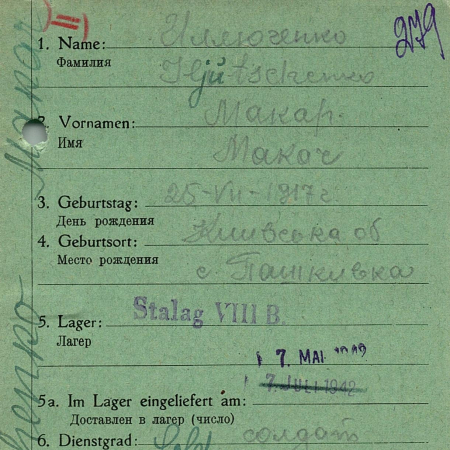 II)
279
1. Name: Илюченко
Фамилия
Iljutschenko
2. Vornamen: Макар
Имя
Макар
3. Geburtstag: 25-VII-1917г
День рождения
4. Geburtsort: Київська об
Место рождения
с. Пашкивка
5. Lager: Stalag VIII B.
Лагерь
7. MAI 1942
7. JULI 1942
5a. Im Lager eingeliefert am:
Доставлен в лагерь (число)
6. Dienstgrad: Sold. солдат